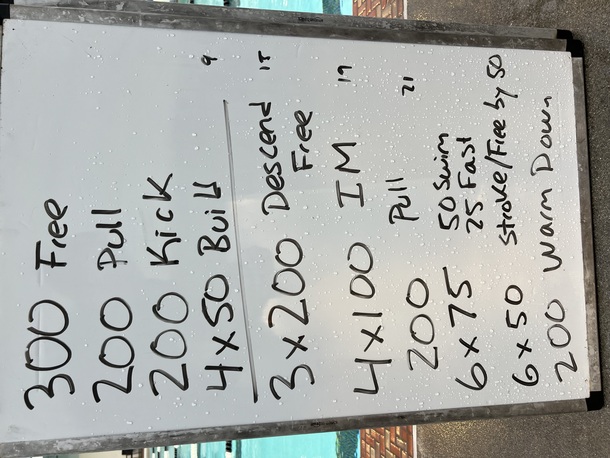 300 Free
200 Pull
200 Kick
4x50 Build 9
3x200 Descend 15
Free
4x100 IM 19
200 Pull 21
6x75 50 Swim
25 Fast
6x50 Stroke/Free by 50
200 Warm Down